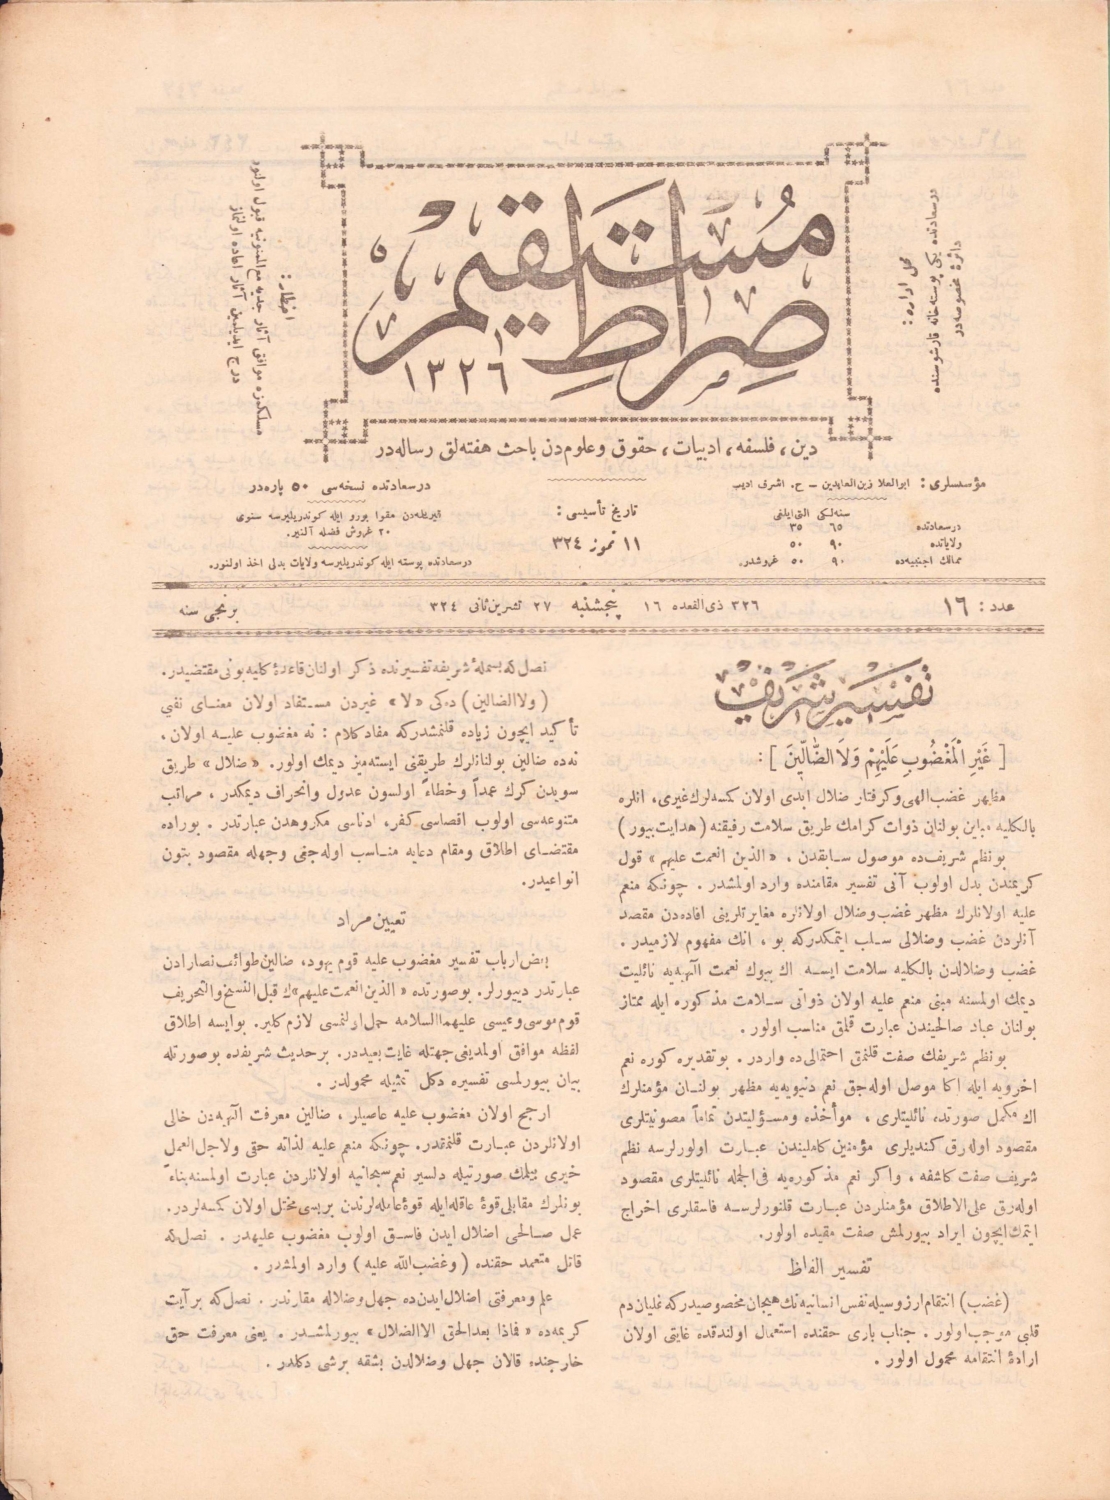 محل اداره :
درسعادتده یکی پوسته‌خانه قارشوسنده
دائرهٔ مخصوصه‌در
صراط مستقیم
۱۳۲۶
اخطار :
مسلکمزه موافق آثار جدیه مع‌الممنونیه قبول اولنور
درج ایدلمین آثار اعاده اولنماز
دین ، فلسفه ، ادبیات ، حقوق و علومدن باحث هفته‌لق رساله‌در
مؤسسلری : ابوالعلا زین‌العابدین – ح. اشرف ادیب
سنه‌لکی التی‌ایلغی
درسعادتده ۶۵ ۳۵
ولایاتده ۹۰ ۵۰
ممالك اجنبیه‌ده ۹۰ ۵۰ غروشدر.
تاریخ تأسیسی :
۱۱ تموز ۳۲۴
درسعادتده نسخه‌سی ۵۰ پاره‌در
قیریلمه‌دن مقوا بورو ایله کوندریلیرسه سنوی
۲۰ غروش فضله آلنیر.
درسعادتده پوسته ایله کوندریلیرسه ولایات بدلی اخذ اولنور.
عدد : ۱۶ ۳۲۶ ذی القعده ۱۶ پنجشنبه ۲۷ تشرین ثانی ۳۲۴ برنجی سنه
تفسیر شریف
[ غَیْرِ الْمَغْضُوبِ عَلَیْهِمْ وَلَا الضَّالِّینَ ] :
مظهر غضب الهی و کرفتار ضلال ابدی اولان کمسه‌لرك غیری، انلره
بالکلیه مباین بولنان ذوات کرامك طریق سلامت رفیقنه ( هدایت بیور )
بو نظم شریف‌ده موصول سابقدن ، « الذین انعمت علیهم » قول
کریمندن بدل اولوب آنی تفسیر مقامنده وارد اولمشدر . چونکه منعم
علیه اولانلرك مظهر غضب و ضلال اولانلره مغایرتلرینی افاده‌دن مقصد
آنلردن غضب و ضلالی سلب ایتمکدرکه بو ، انك مفهوم لازمیدر .
غضب و ضلالدن بالکلیه سلامت ایسه اك بیوك نعمت الهیه‌یه نائلیت
دیمك اولمسنه مبنی منعم علیه اولان ذواتی سلامت مذکوره ایله ممتاز
بولنان عباد صالحیندن عبارت قلمق مناسب اولور .
بو نظم شریفك صفت قلنمق احتمالی ده واردر . بو تقدیره کوره نعم
اخرویه ایله اکا موصل اوله‌جق نعم دنیویه‌یه مظهر بولنان مؤمنلرك
اك مکمل صورتده نائلیتلری ، مؤاخذه و مسؤلیتدن تماماً مصونیتلری
مقصود اوله‌رق کندیلری مؤمنین کاملیندن عبارت اولورلرسه نظم
شریف صفت کاشفه ، واکر نعم مذکوره‌یه فی الجمله نائلیتلری مقصود
اوله‌رق علی الاطلاق مؤمنلردن عبارت قلنورلرسه فاسقلری اخراج
ایتمك ایچون ایراد بیورلمش صفت مقیده اولور.
تفسیر الفاظ
(غضب) انتقام ارزوسیله نفس انسانیه‌نك هیجان مخصوصیدرکه غلیان دم
قلبی موجب اولور . جناب باری حقنده استعمال اولندقده غایتی اولان
ارادهٔ انتقامه محمول اولور .
نصل که بسملهٔ شریفه تفسیرنده ذکر اولنان قاعدهٔ کلیه بونی مقتضیدر.
( ولا الضالین ) ده‌کی «لا» غیردن مستفاد اولان معنای نفیی
تأکید ایچون زیاده قلنمشدرکه مفاد کلام : نه مغضوب علیه اولان ،
نه‌ده ضالین بولنانلرك طریقنی ایسته‌میز دیمك اولور. «ضلال» طریق
سویدن کرك عمداً و خطاءً اولسون عدول و انحراف دیمکدر ، مراتب
متنوعه‌سی اولوب اقصاسی کفر، ادناسی مکروهدن عبارتدر . بوراده
مقتضای اطلاق و مقام دعایه مناسب اوله‌جغی وجهله مقصود بتون
انواعیدر.
تعیین مراد
بعض ارباب تفسیر مغضوب علیه قوم یهود، ضالین طوائف نصارادن
عبارتدر دییورلر. بو صورتده « الذین انعمت علیهم »ك قبل النسخ والتحریف
قوم موسی و عیسی علیهما السلامه حمل اولنمسی لازم کلیر. بو ایسه اطلاق
لفظه موافق اولمدیغی جهتله غایت بعیددر. بر حدیث شریفده بو صورتله
بیان بیورلمسی تفسیره دکل تمثیله محمولدر .
ارجح اولان مغضوب علیه عاصیلر ، ضالین معرفت الهیه‌دن خالی
اولانلردن عبارت قلنمقدر. چونکه منعم علیه لذاته حقی ولاجل العمل
خیری بیلمك صورتیله دلسیر نعم سبحانیه اولانلردن عبارت اولمسنه بناءً
بونلرك مقابلی قوهٔ عاقله ایله قوهٔ عامله‌لرندن بریسی مختل اولان کمسه‌لردر.
عمل صالحی اضلال ایدن فاسق اولوب مغضوب علیهدر . نصل که
قاتل متعمد حقنده ( وغضب الله علیه ) وارد اولمشدر .
علم و معرفتی اضلال ایدن‌ده جهل و ضلاله مقارندر . نصل که بر آیت
کریمه‌ده « فماذا بعد الحق الا الضلال » بیورلمشدر . یعنی معرفت حق
خارجنده قالان جهل و ضلالدن بشقه برشی دکلدر .